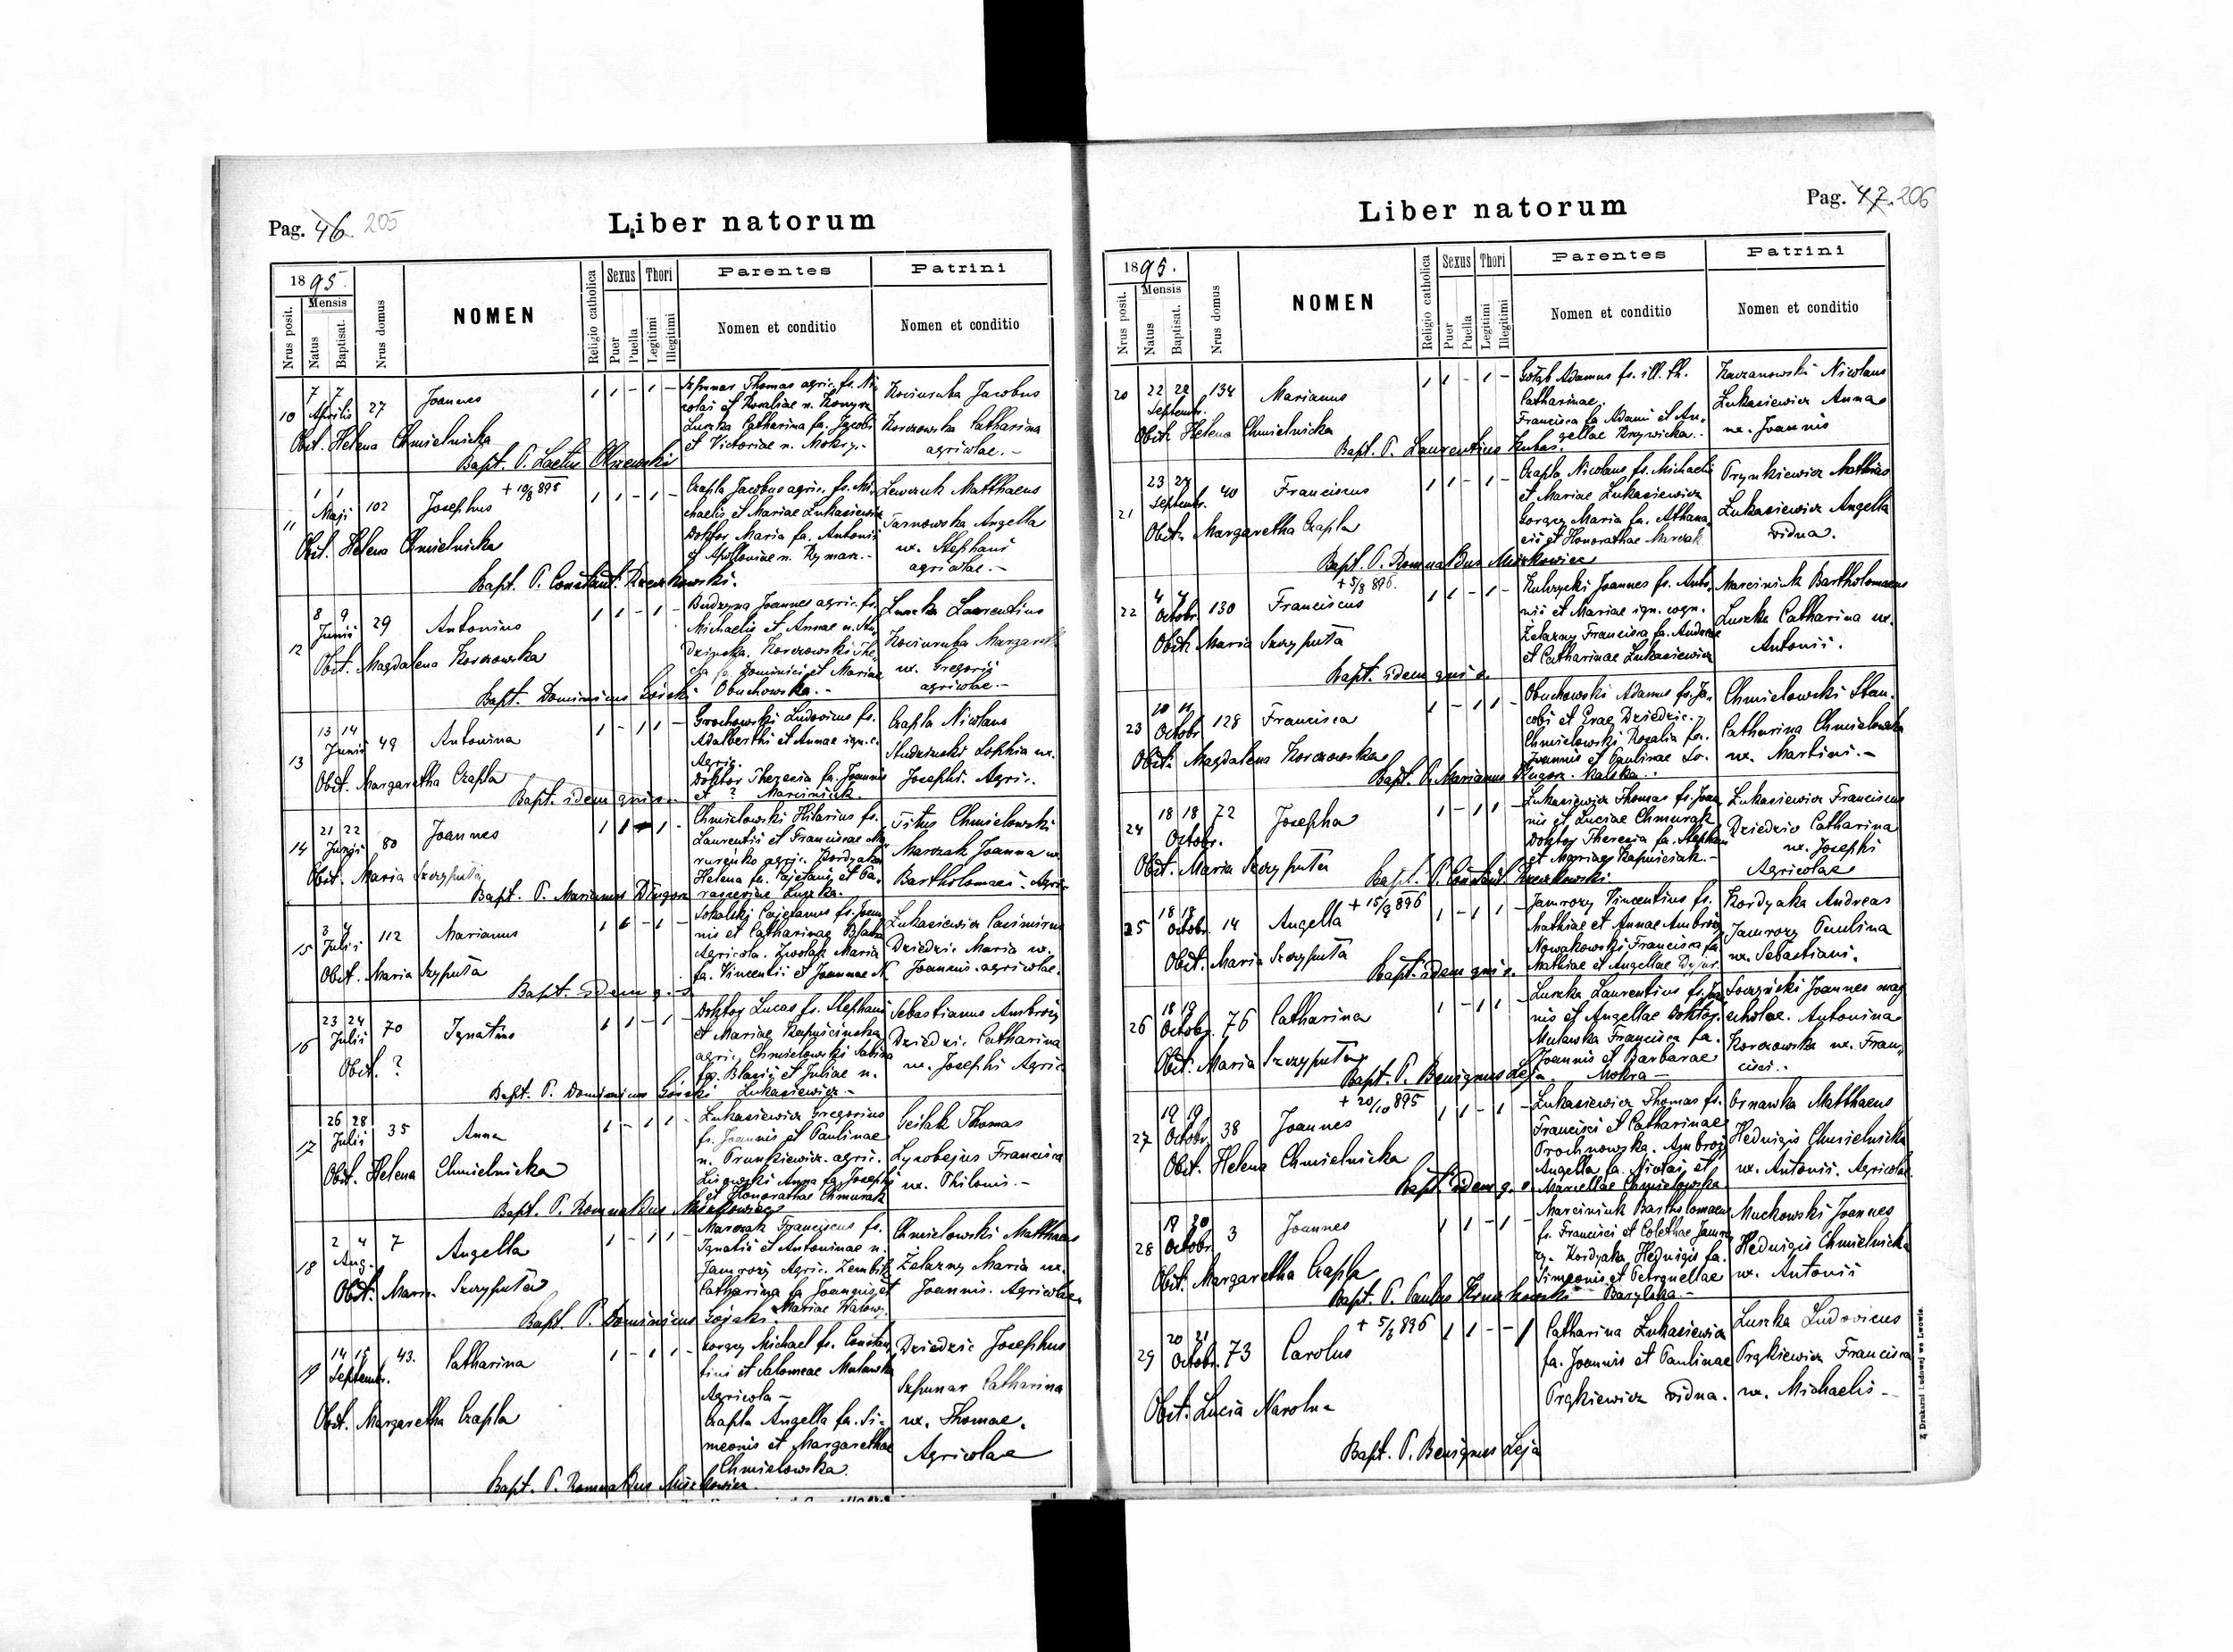 Pag. 46. 205
Liber natorum
1895.
Nrus posit.
Mensis
Natus
Baptisat.
Nrus domus
NOMEN
Religio catholica
Sexus
Puer
Puella
Thori
Legitimi
Illegitimi
Parentes
Nomen et conditio
Patrini
Nomen et conditio
10
7 7
Aprilis
27
Joannes
1 1 - 1 -
Szpunar Thomas agric. fs. Ni-
colai et Rosaliae n.
Luszka Catharina fa. Jacobi
et Victoriae n. Mokry.-
Kociuruba Jacobus
Korczowska Catharina
agricolae.-
Obst. Helena Chmielnicka
Bapt. P. Laetus Olszewski
11
1 1
Maji
102
Josephus
+ 10/8 895
1 1 - 1 -
Czapla Jacobus agric. fs. Mi-
chaelis et Mariae Lukasiewicz
Doktor Maria fa. Antonii
et Apolloniae n. Rymarz.-
Lewczuk Matthaeus
Tarnowska Angella
ux. Stephani
agricolae.-
Obst. Helena Chmielnicka
Bapt. P. Constant.
12
8 9
Junii
29
Antonius
1 1 - 1 -
Budzyna Joannes agric. fs.
Michaelis et Annae n. Stu-
dzinska. Korczowski The-
cla fa. Dominici et Mariae
Obuchowska.-
Luszka Laurentius
Kociuruba Margareth
ux. Gregorii
agricolae.-
Obst. Magdalena Korczowska
Bapt. Dominicus Górski
13
13 14
Junii
49
Antonina
1 - 1 1 -
Grochowski Ludovicus fs.
Adalberti et Annae ign. c.
Agric.
Doktor Theresia fa. Joannis
et ? Marciniuk.
Czapla Nicolaus
Studzinski Sophia ux.
Josephi. Agric.
Obst. Margaretha Czapla
Bapt. idem qui s.
14
21 22
Junii
80
Joannes
1 1 - 1 -
Chmielowski Hilarius fs.
Laurentii et Franciscae Ma-
agric. Kordyaka
Helena fa. Cajetani et Pa-
rascevae Luszka.
Titus Chmielowski
Marczak Joanna ux.
Bartholomaei. Agric.
Obst. Maria Szczyputa
Bapt. P. Marianus Długosz
15
3 4
Julii
112
Marianus
1 1 - 1 -
Sokalski Cajetanus fs. Joan-
nis et Catharinae
Agricola. Zwolak Maria
fa. Vincentii et Joannae N.
Lukasiewicz Casimirus
Dziedzic Maria ux.
Joannis. agricolae.
Obst. Maria Szczyputa
Bapt. idem q. s.
16
23 24
Julii
70
Ignatius
1 1 - 1 -
Doktor Lucas fs. Stephani
et Mariae Kapuścinska
agric. Chmielowski Sabina
fa. Blasii et Juliae n.
Lukasiewicz-
Sebastianus Ambroży
Dziedzic Catharina
ux. Josephi Agric.
Obst. ?
Bapt. P. Dominicus Górski
17
26 28
Julii
35
Anna
1 - 1 1 -
Lukasiewicz Gregorius
fs. Joannis et Paulinae
n. Prunkiewicz. agric.
Lisowski Anna fa. Josephi
et Honorathae Chmurak
Thomas
Francisca
ux. Philonis.-
Obst. Helena Chmielnicka
Bapt. P. Romualdus Miszkowicz
18
2 4
Aug.
7
Angella
1 - 1 1 -
Marczak Franciscus fs.
Ignatii et Antoninae n.
Jamroży Agric.
Catharina fa. Joannis et
Mariae
Chmielowski Matthaeus
Żelazny Maria ux.
Joannis. Agricolae.
Obst. Maria Szczyputa
Bapt. P. Dominicus Górski.
19
14 15
Septembr.
43.
Catharina
1 - 1 1 -
Gorgzy Michael fs. Constan-
tini et Salomeae Mulawska
Agricola-
Czapla Angella fa. Si-
meonis et Margarethae
Chmielowska.
Dziedzic Josephus
Szpunar Catharina
ux. Thomae.
Agricolae
Obst. Margaretha Czapla
Bapt. P. Romualdus Miszkowicz.
Pag. 47. 206
Liber natorum
1895.
Nrus posit.
Mensis
Natus
Baptisat.
Nrus domus
NOMEN
Religio catholica
Sexus
Puer
Puella
Thori
Legitimi
Illegitimi
Parentes
Nomen et conditio
Patrini
Nomen et conditio
20
22 22
Septembr.
134
Marianus
1 1 - 1 -
Gołąb Adamus fs. ill. th.
Catharinae.
Francisca fa Adami et An-
gellae Krzywicka.
Kaczanowski Nicolaus
Lukasiewicz Anna
ux. Joannis
Obstr. Helena Chmielnicka
Bapt. P. Laurentius Kubas.
21
23 24
Septembr.
40
Franciscus
1 1 - 1 -
Czapla Nicolaus fs. Michaelis
et Mariae Lukasiewicz
Gorgzy Maria fa. Athana-
sii et Honorathae Marczak
Prynkiewicz Mathias
Lukasiewicz Angella
vidua.
Obstr. Margaretha Czapla
Bapt. P. Romualdus Miszkowicz
22
4 4
Octobr.
130
+ 5/8 896.
Franciscus
1 1 - 1 -
Kulczycki Joannes fs. Anto-
nii et Mariae ign. cogn.
Żelazny Francisca fa. Andreae
et Catharinae Lukasiewicz
Marciniuk Bartholomaeus
Luszka Catharina ux.
Antonii.
Obstr. Maria Szczyputa
Bapt. idem qui s.
23
Octobr.
128
Francisca
1 - 1 1 -
Obuchowski Adamus fs. Ja-
cobi et Evae Dziedzic.
Chmielowski Rosalia fa.
Joannis et Paulinae So-
kalska.
Chmielowski Stan.
Catharina Chmielowska
ux. Martini.-
Obstr. Magdalena Korczowska
Bapt. P. Marianus Długosz.
24
18 18
Octobr.
72
Josepha
1 - 1 1 -
Lukasiewicz Thomas fs. Joan-
nis et Luciae Chmurak
Doktor Theresia fa. Stephani
et Mariae Kapuściak.-
Lukasiewicz Franciscus
Dziedzic Catharina
ux. Josephi
Agricolae
Obst. Maria Szczyputa
Bapt. P. Constant.
25
18 18
Octobr.
14
Angella
+ 15/9 896
1 - 1 1 -
Jamroży Vincentius fs.
Mathiae et Annae Ambroży
Nowakowski Francisca fa.
Mathiae et Angellae
Kordyaka Andreas
Jamroży Paulina
ux. Sebastiani.
Obst. Maria Szczyputa
Bapt. idem qui s.
26
18 19
Octobr.
76
Catharina
1 - 1 1 -
Luszka Laurentius fs. Joa-
nis et Angellae Doktor.
Mulawska Francisca fa.
Joannis et Barbarae
Mokra-
Joannes mag.
scholae. Antonina
Korczowska ux. Fran-
cisci..
Obst. Maria Szczyputa
Bapt. P. Benignus Leja
27
19 19
Octobr.
38
+ 20/10 895
Joannes
1 1 - 1 -
Lukasiewicz Thomas fs.
Francisci et Catharinae
Prochnowska. Ambroży
Angella fa. Nicolai et
Marcellae Chmielowska.
Ornawka Matthaeus
Hedvigis Chmielnicka
ux. Antonii. Agricolae
Obst. Helena Chmielnicka
Bapt. idem q. s.
28
19 20
Octobr.
3
Joannes
1 1 - 1 -
Marciniuk Bartholomaeus
fs. Francisci et Colethae Jamro-
ży. Kordyaka Hedvigis fa.
Simeonis et Petronellae
Baryłka.-
Muchowski Joannes
Hedvigis Chmielnicka
ux. Antonii
Obst. Margaretha Czapla
Bapt. P. Paulus
29
20 21
Octobr.
73
Carolus
+ 5/8 896
1 1 - - 1
Catharina Lukasiewicz
fa. Joannis et Paulinae
Prękiewicz vidua.
Luszka Ludovicus
Prękiewicz Francisca
ux. Michaelis-
Obst. Lucia Narolna
Bapt. P. Benignus Leja
Z Drukarni Ludowej we Lwowie.